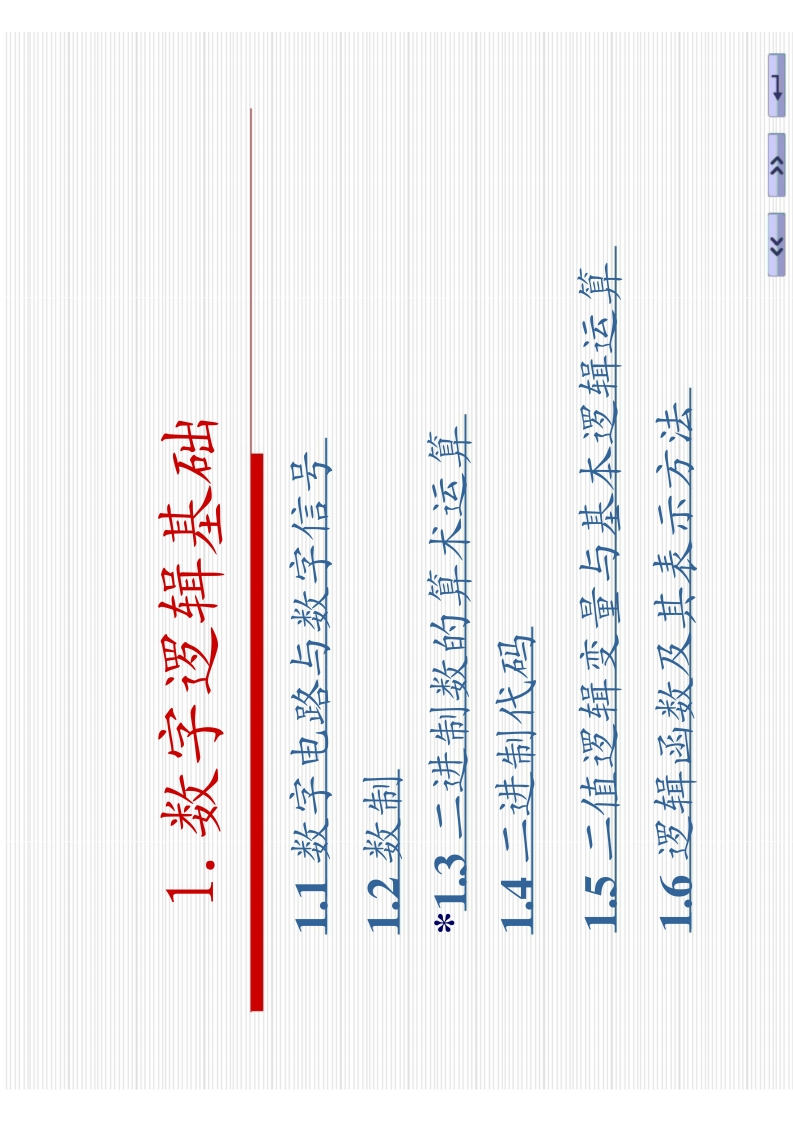 1. 数字逻辑基础
1.1 数字电路与数字信号
1.2 数制
*1.3 二进制数的算术运算
1.4 二进制代码
1.5 二值逻辑变量与基本逻辑运算
1.6 逻辑函数及其表示方法